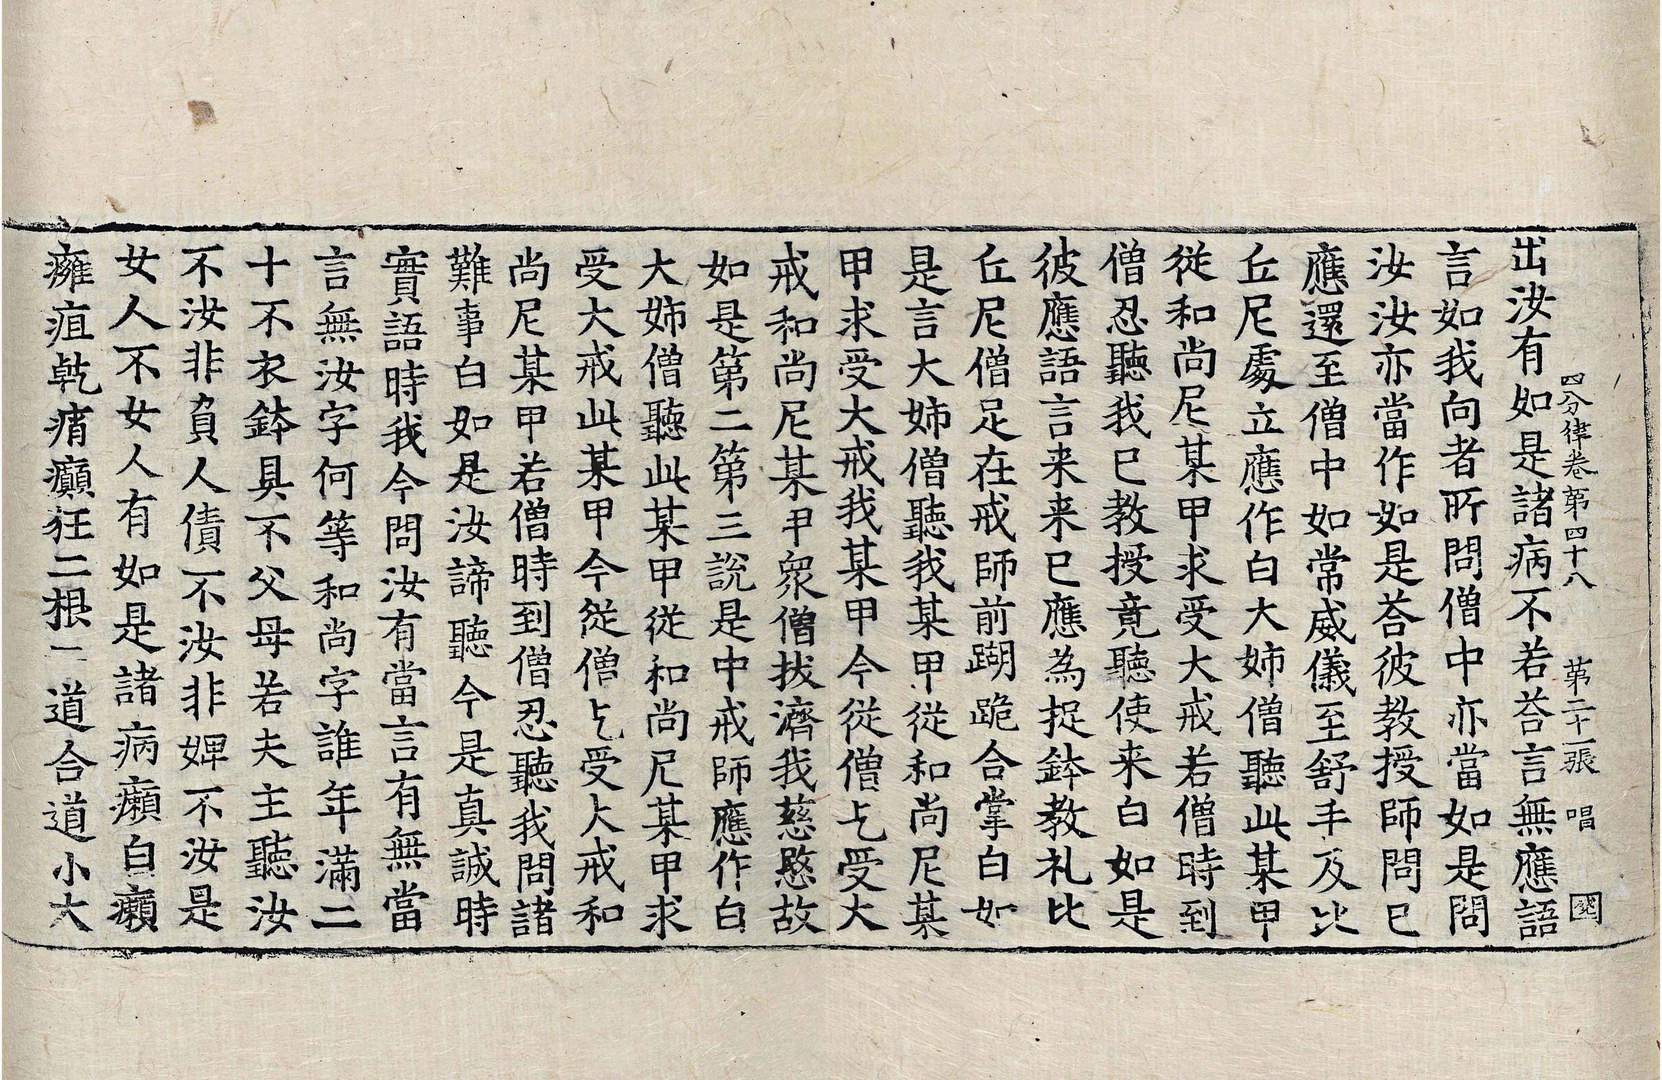 四分律卷第四十八 第二十一張 唱
出汝有如是諸病不若荅言無應語
言如我向者所問僧中亦當如是問
汝汝亦當作如是荅彼教授師問已
應還至僧中如常威儀至舒手及比
丘尼處立應作白大姉僧聽此某甲
従和尚尼某甲求受大戒若僧時到
僧忍聽我已教授竟聽使来白如是
彼應語言来来已應為捉鉢教礼比
丘尼僧足在戒師前䠒跪合掌白如
是言大姉僧聽我某甲従和尚尼某
甲求受大戒我某甲今従僧乞受大
戒和尚尼某甲衆僧拔濟我慈愍故
如是第二第三說是中戒師應作白
大姉僧聽此某甲従和尚尼某甲求
受大戒此某甲今従僧乞受大戒和
尚尼某甲若僧時到僧忍聽我問諸
難事白如是汝諦聽今是真誠時
實語時我今問汝有當言有無當
言無汝字何等和尚字誰年滿二
十不衣鉢具不父母若夫主聽汝
不汝非負人債不汝非婢不汝是
女人不女人有如是諸病癩白癩
癰疽乾痟癲狂二根二道合道小大